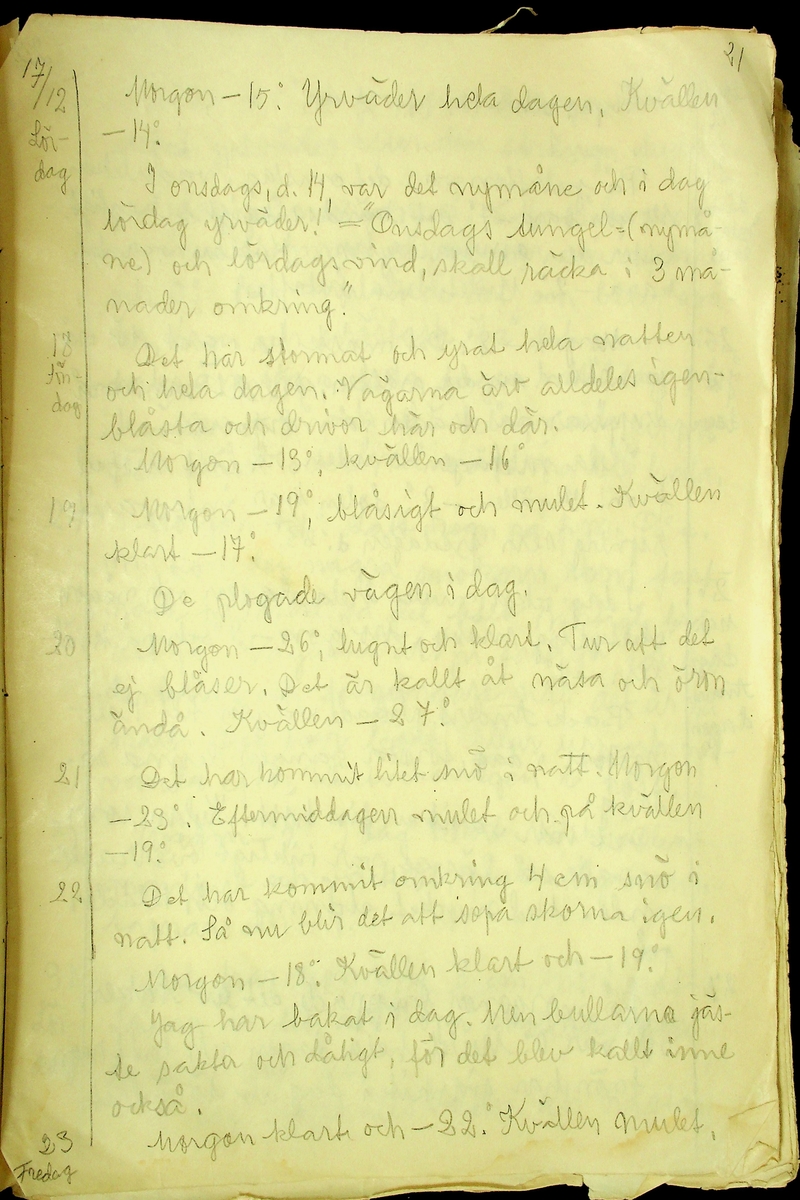 21
17/12 Morgon -15°. Yrväder hela dagen. Kvällen
Lör- -14°.
dag I onsdags, d. 14, var det nymåne och i dag
lördag yrväder! = "Onsdags tungel=(nymå-
ne) och lördagsvind, skall räcka i 3 må-
nader omkring."
18 Det har stormat och yrat hela natten
Sön- och hela dagen. Vägarna äro alldeles igen-
dag blåsta och drivor här och där.
Morgon -13°, kvällen -16°
19 Morgon -19°, blåsigt och mulet. Kvällen
klart -17°.
De plogade vägen i dag.
20 Morgon -26°, lugnt och klart. Tur att det
ej blåser. Det är kallt åt näsa och öron
ändå. Kvällen -27°.
21 Det har kommit litet snö i natt. Morgon
-23°. Eftermiddagen mulet och på kvällen
-19°.
22 Det har kommit omkring 4 cm snö i
natt. Så nu blir det att sopa skorna igen.
Morgon -18°. Kvällen klart och -19°.
Jag har bakat i dag. Men bullarna jäs-
te sakta och dåligt, för det blev kallt inne
också.
23 Morgon klart och -22°. Kvällen mulet,
Fredag